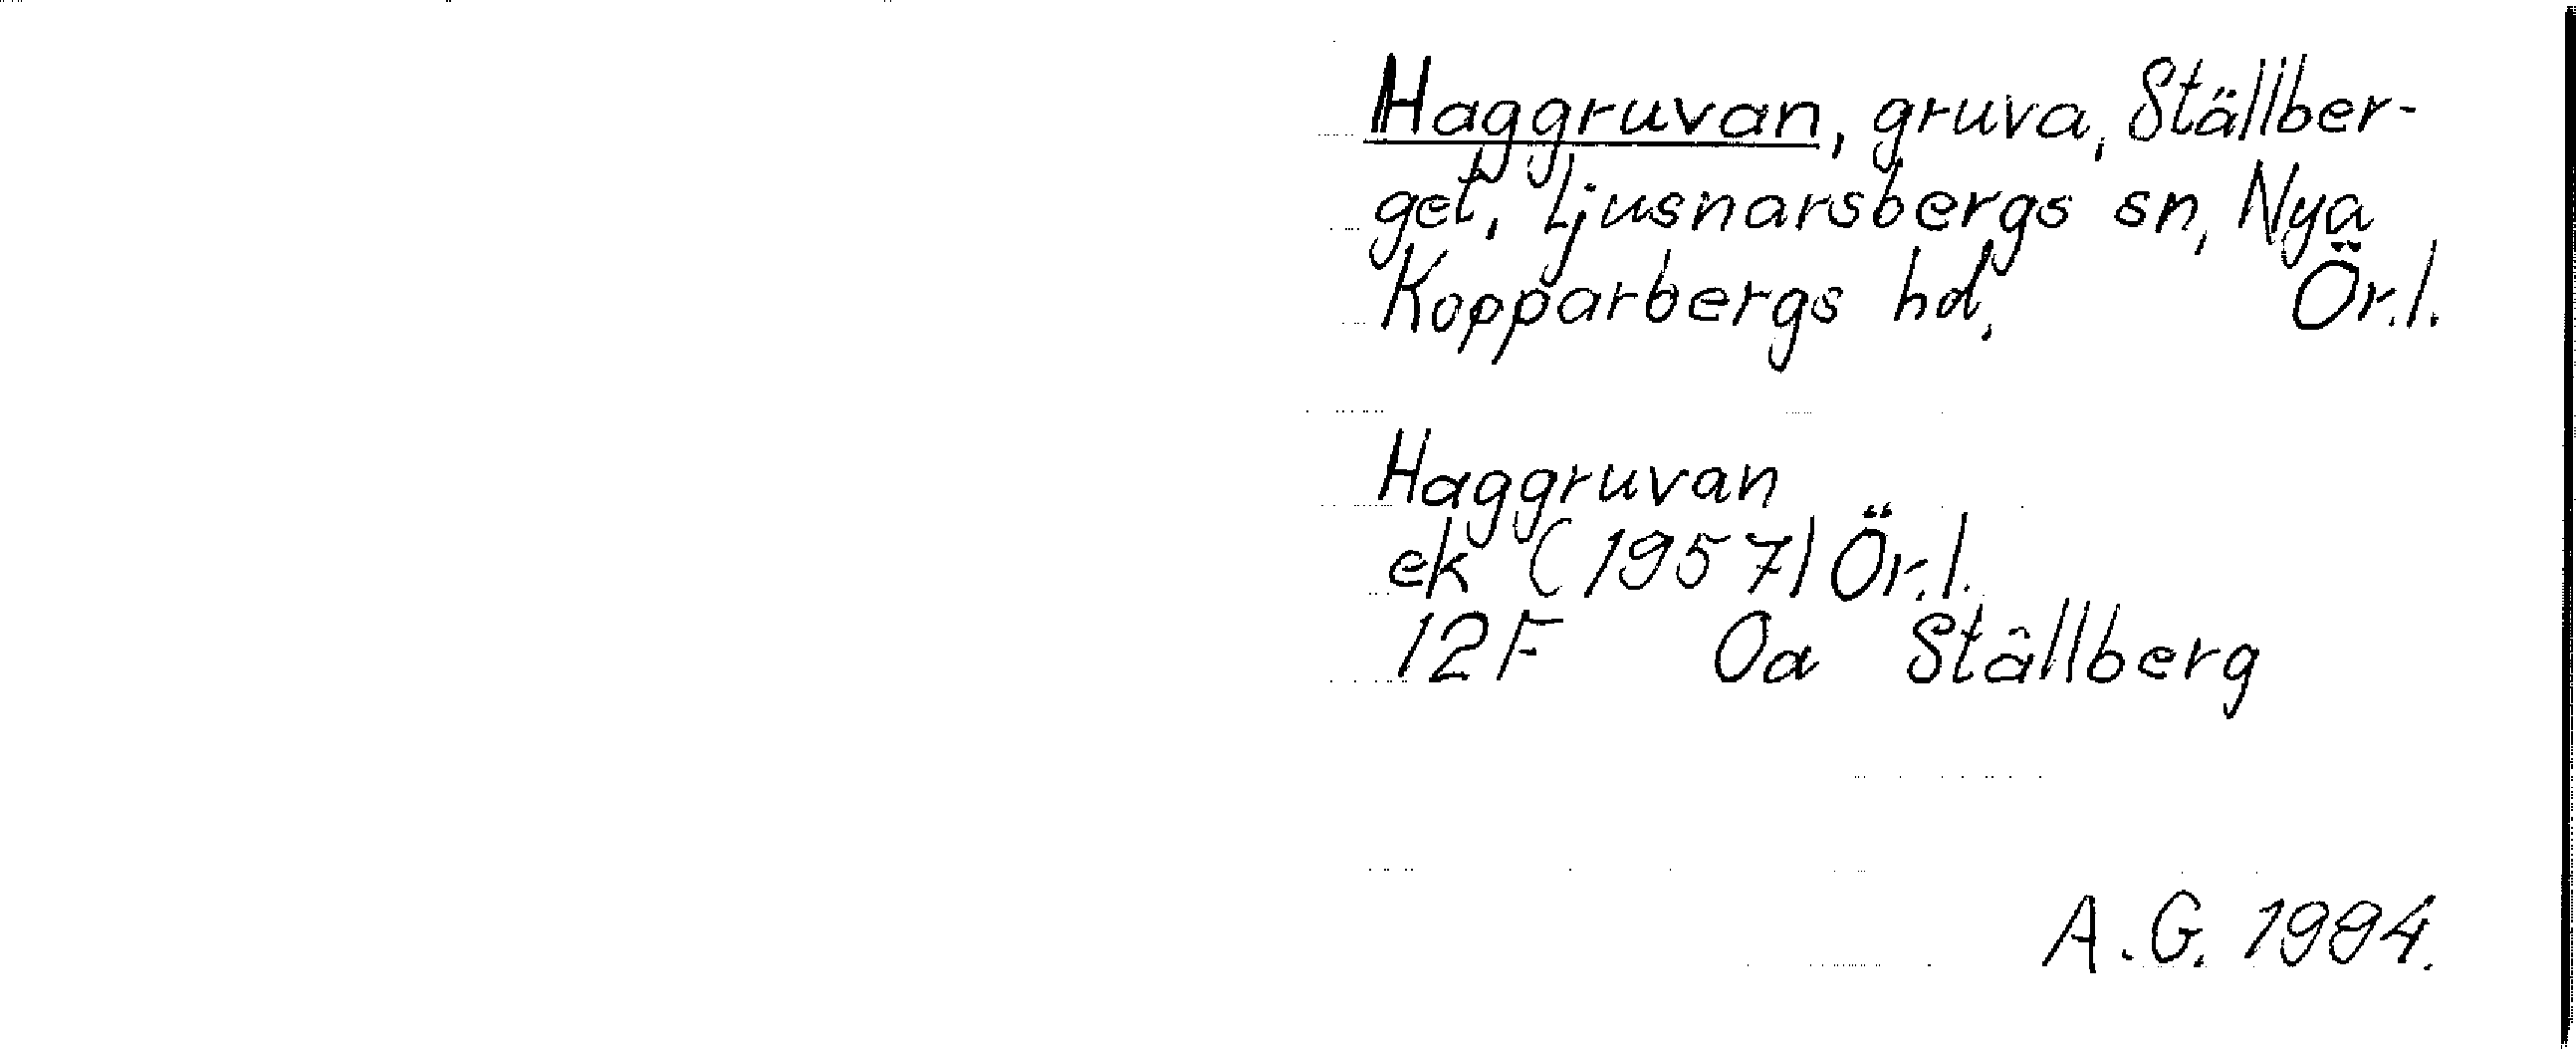 Haggruvan, gruva, Ställber-
get, Ljusnarsbergs sn, Nya
Kopparbergs hd, Ör.l.
Haggruvan
ek (1957) Ör.l.
12F 0a Ställberg
A.G. 1994.